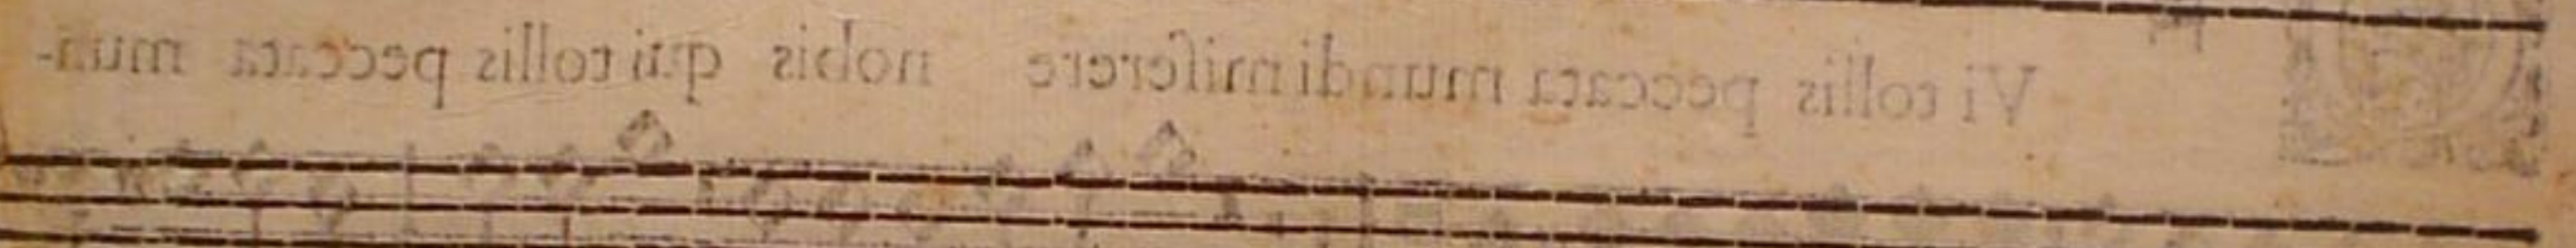 Vi tollis peccata mundi miſerere nobis qui tollis peccata mun-